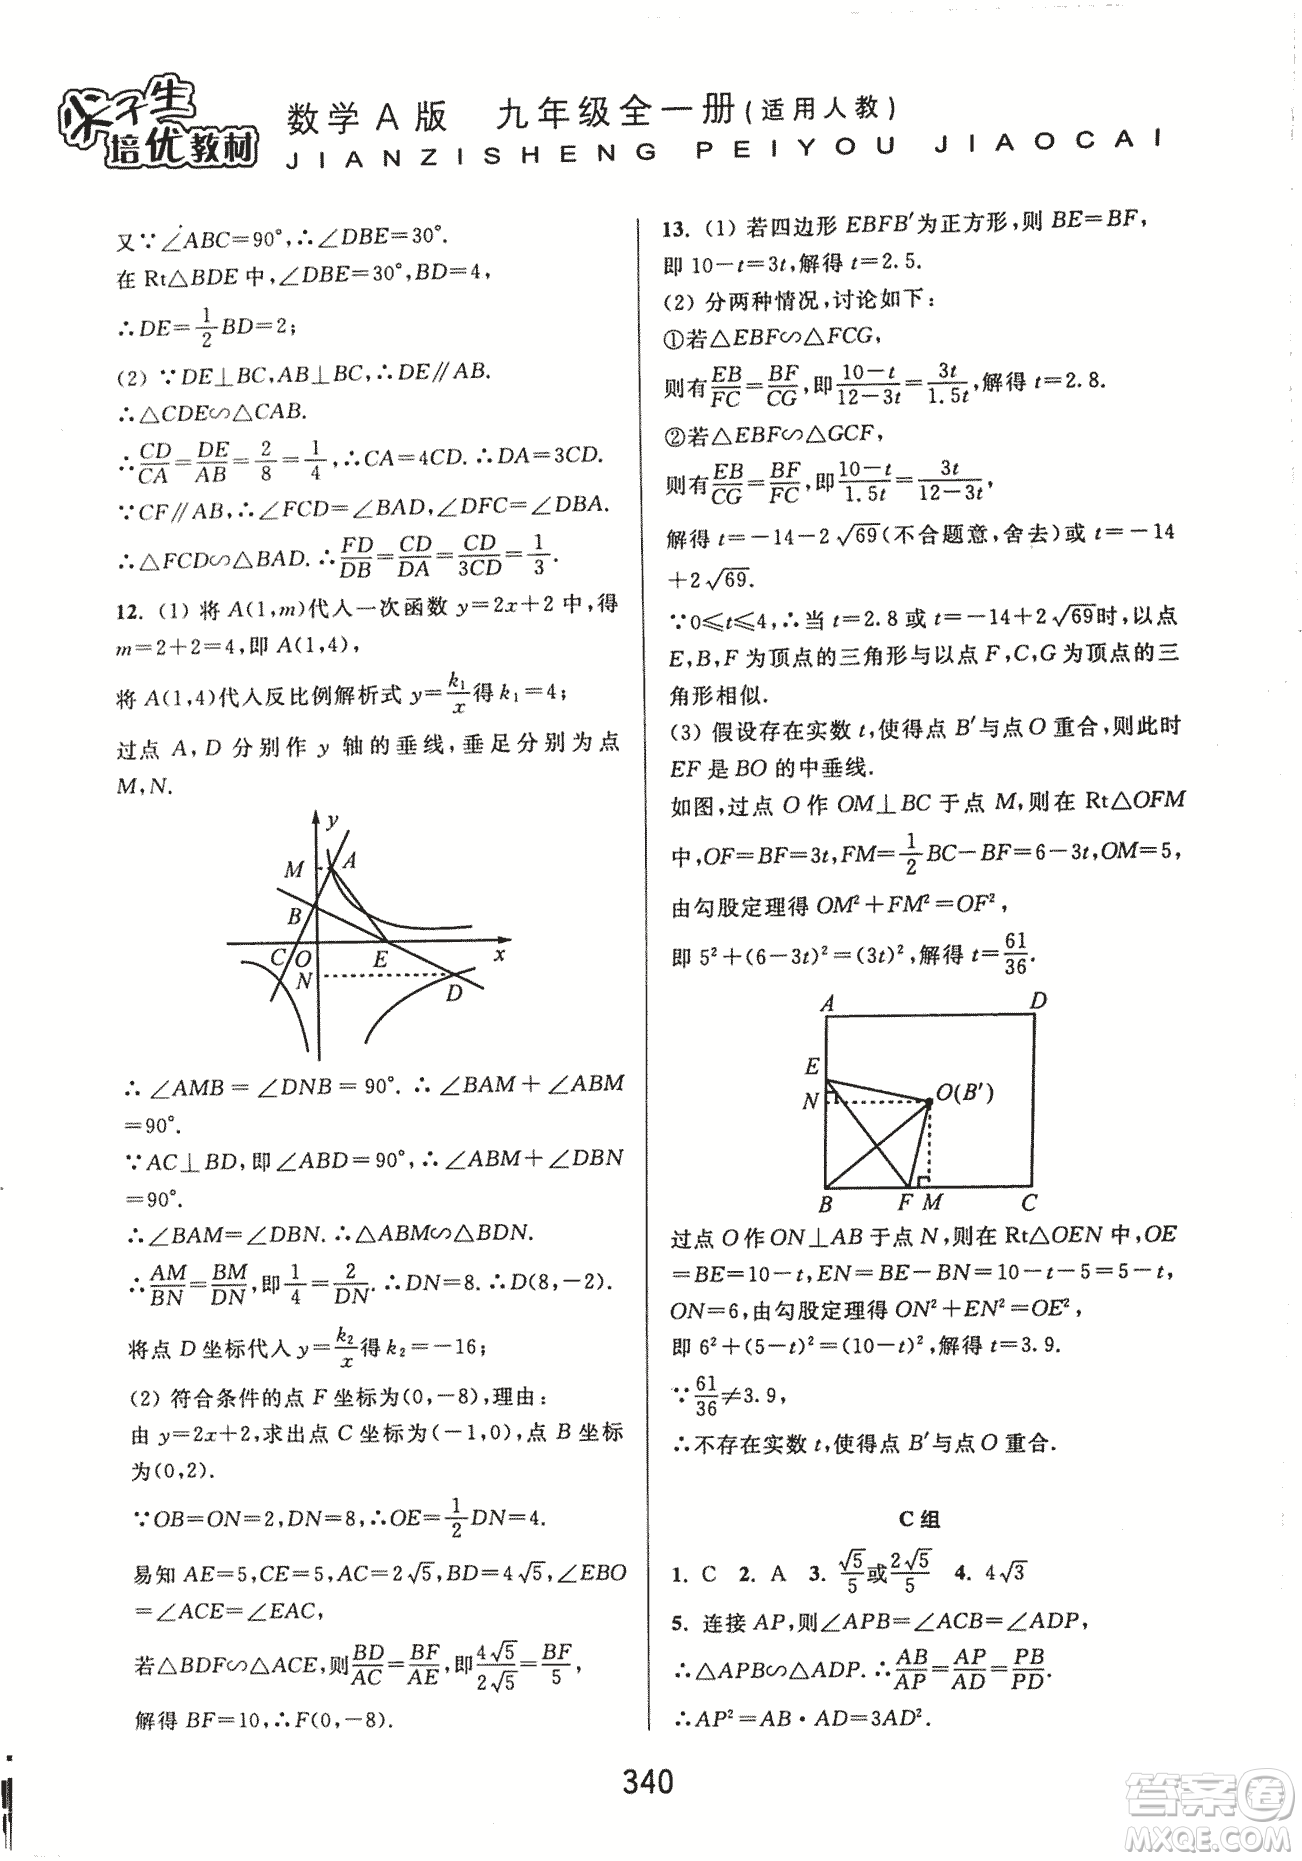 尖子生
培优教材
数学A版 九年级全一册(适用人教)
JIANZISHENG PEIYOU JIAOCAI
又∵∠ABC=90°,∴∠DBE=30°.
在 Rt△BDE 中,∠DBE=30°,BD=4,
∴DE=1/2BD=2;
(2) ∵DE⊥BC,AB⊥BC,∴DE∥AB.
∴△CDE∽△CAB.
∴CD/CA=DE/AB=2/8=1/4,∴CA=4CD.∴DA=3CD.
∵CF∥AB,∴∠FCD=∠BAD,∠DFC=∠DBA.
∴△FCD∽△BAD.∴FD/DB=CD/DA=CD/3CD=1/3.
12. (1) 将 A(1,m)代入一次函数 y=2x+2 中,得
m=2+2=4,即 A(1,4),
将 A(1,4)代入反比例解析式 y=k₁/x得 k₁=4;
过点 A,D 分别作 y 轴的垂线,垂足分别为点
M,N.
y
M
A
B
C
O
E
x
N
D
∴∠AMB=∠DNB=90°.∴∠BAM+∠ABM
=90°.
∵AC⊥BD,即∠ABD=90°,∴∠ABM+∠DBN
=90°.
∴∠BAM=∠DBN.∴△ABM∽△BDN.
∴AM/BN=BM/DN,即1/4=2/DN.∴DN=8.∴D(8,-2).
将点 D 坐标代入y=k₂/x得 k₂=-16;
(2) 符合条件的点 F 坐标为(0,-8),理由:
由 y=2x+2,求出点 C 坐标为(-1,0),点 B 坐标
为(0,2).
∵OB=ON=2,DN=8,∴OE=1/2DN=4.
易知 AE=5,CE=5,AC=2√5,BD=4√5,∠EBO
=∠ACE=∠EAC,
若△BDF∽△ACE,则BD/AC=BF/AE,即4√5/2√5=BF/5,
解得 BF=10,∴F(0,-8).
13. (1) 若四边形 EBFB′为正方形,则 BE=BF,
即 10-t=3t,解得 t=2.5.
(2) 分两种情况,讨论如下:
①若△EBF∽△FCG,
则有EB/FC=BF/CG,即10-t/12-3t=3t/1.5t,解得 t=2.8.
②若△EBF∽△GCF,
则有EB/CG=BF/FC,即10-t/1.5t=3t/12-3t,
解得 t=-14-2√69(不合题意,舍去)或 t=-14
+2√69.
∵0≤t≤4,∴当 t=2.8 或 t=-14+2√69时,以点
E,B,F 为顶点的三角形与以点 F,C,G 为顶点的三
角形相似.
(3) 假设存在实数 t,使得点 B′与点 O 重合,则此时
EF 是 BO 的中垂线.
如图,过点 O 作 OM⊥BC 于点 M,则在 Rt△OFM
中,OF=BF=3t,FM=1/2BC-BF=6-3t,OM=5,
由勾股定理得 OM²+FM²=OF²,
即 5²+(6-3t)²=(3t)²,解得 t=61/36.
A
D
E
N
O(B′)
B
F
M
C
过点 O 作 ON⊥AB 于点 N,则在 Rt△OEN 中,OE
=BE=10-t,EN=BE-BN=10-t-5=5-t,
ON=6,由勾股定理得 ON²+EN²=OE²,
即 6²+(5-t)²=(10-t)²,解得 t=3.9.
∵61/36≠3.9,
∴不存在实数 t,使得点 B′与点 O 重合.
C 组
1. C 2. A 3. √5/5或2√5/5 4. 4√3
5. 连接 AP,则∠APB=∠ACB=∠ADP,
∴△APB∽△ADP.∴AB/AP=AP/AD=PB/PD.
∴AP²=AB·AD=3AD².
340
答案圈
MXQE.COM